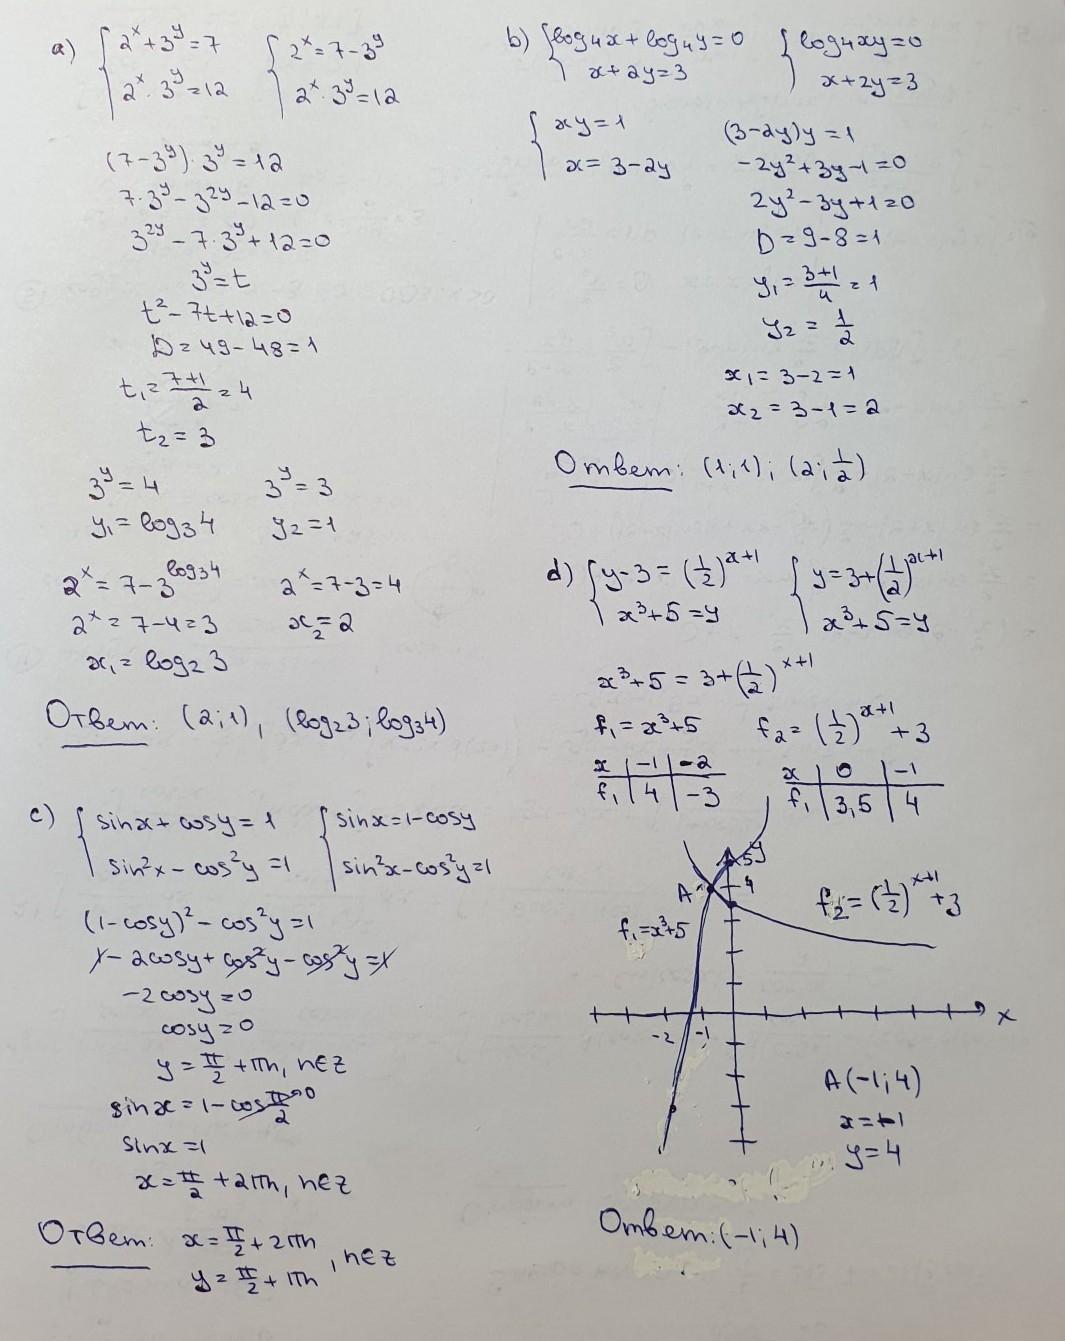 a) { 2^x + 3^y = 7   { 2^x = 7 - 3^y
2^x · 3^y = 12   2^x · 3^y = 12
(7 - 3^y) · 3^y = 12
7 · 3^y - 3^2y - 12 = 0
3^2y - 7 · 3^y + 12 = 0
3^y = t
t² - 7t + 12 = 0
D = 49 - 48 = 1
t₁ = (7+1)/2 = 4
t₂ = 3
3^y = 4   3^y = 3
y₁ = log₃4   y₂ = 1
2^x = 7 - 3^log₃4   2^x = 7 - 3 = 4
2^x = 7 - 4 = 3   x₂ = 2
x₁ = log₂3
Ответ: (2; 1), (log₂3; log₃4)
b) { log₄x + log₄y = 0   { log₄xy = 0
x + 2y = 3   x + 2y = 3
{ xy = 1   (3 - 2y)y = 1
x = 3 - 2y   -2y² + 3y - 1 = 0
2y² - 3y + 1 = 0
D = 9 - 8 = 1
y₁ = (3+1)/4 = 1
y₂ = 1/2
x₁ = 3 - 2 = 1
x₂ = 3 - 1 = 2
Ответ: (1; 1); (2; 1/2)
c) { sinx + cosy = 1   { sinx = 1 - cosy
sin²x - cos²y = 1   sin²x - cos²y = 1
(1 - cosy)² - cos²y = 1
1 - 2cosy + cos²y - cos²y = 1
-2cosy = 0
cosy = 0
y = π/2 + πn, n∈Z
sinx = 1 - cos π/2 → 0
sinx = 1
x = π/2 + 2πn, n∈Z
Ответ: x = π/2 + 2πn
y = π/2 + πn , n∈Z
d) { y - 3 = (1/2)^x+1   { y = 3 + (1/2)^x+1
x³ + 5 = y   x³ + 5 = y
x³ + 5 = 3 + (1/2)^x+1
f₁ = x³ + 5   f₂ = (1/2)^x+1 + 3
x | -1 | -2   x | 0 | -1
f₁ | 4 | -3   f₁ | 3,5 | 4
5 y
A 4
f₂ = (1/2)^x+1 + 3
f₁ = x³ + 5
-2 -1 x
A (-1; 4)
x = -1
y = 4
Ответ: (-1; 4)